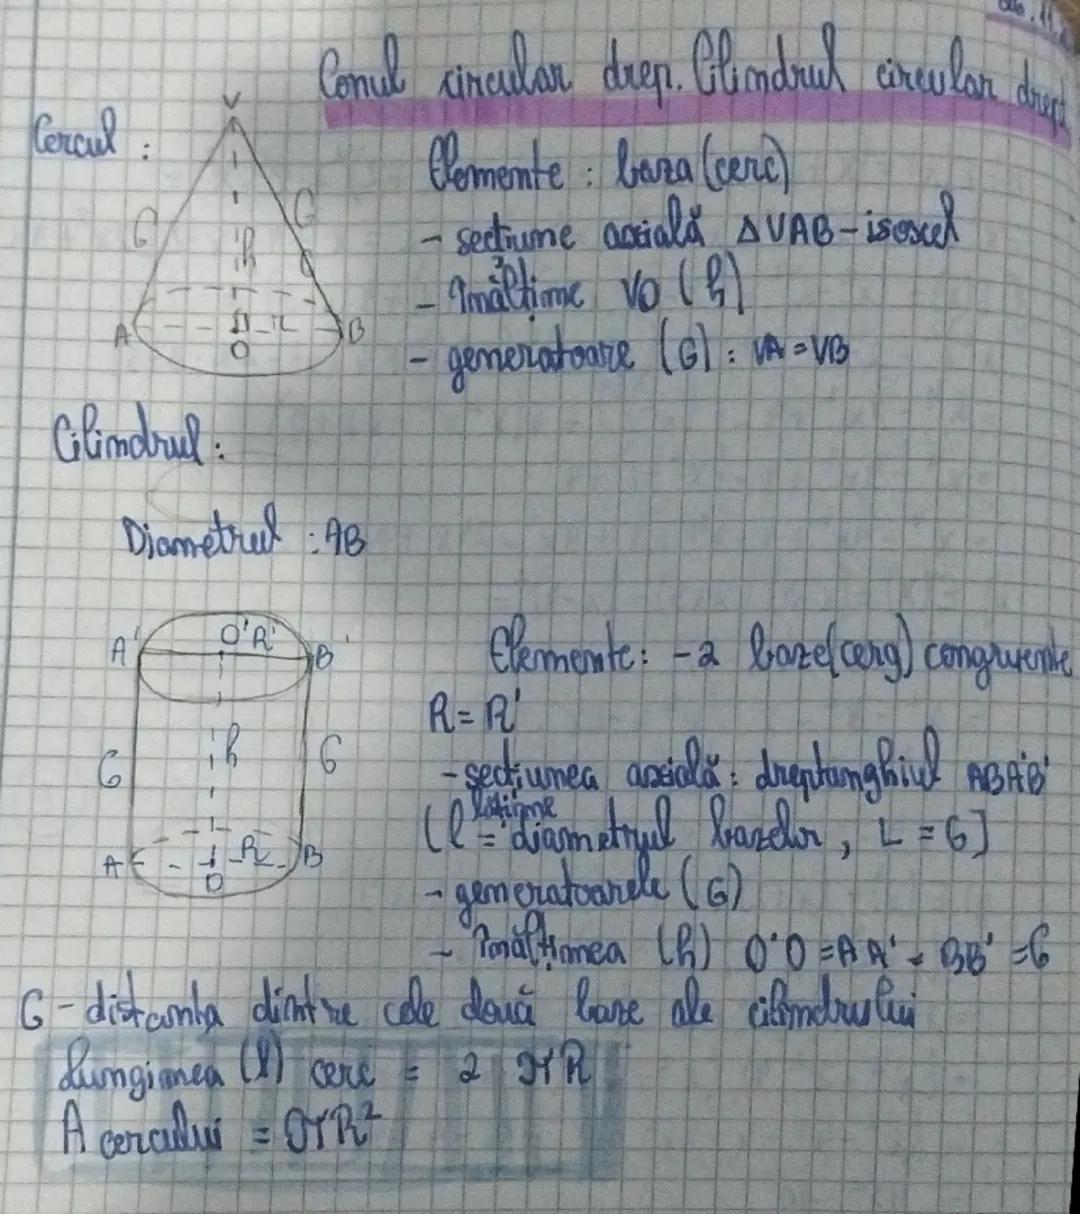 Conul circular drep. Cilindrul circular drept
Cercul :
V
G
G
h
A
r
B
O
Elemente : baza (cerc)
- secțiune axială △VAB - isoscel
- Înălțime VO (h)
- generatoare (G) : VA = VB
Cilindrul :
Diametrul : AB
A'
O'R'
B'
G
h
G
A
R
B
O
Elemente: - 2 baze(cerg) congruente
R = R'
- secțiunea axială : dreptunghiul ABA'B'
lățime
(l = diametrul bazelor, L = G)
- generatoarele (G)
- Înălțimea (h) O'O = AA' = BB' = G
G - distanța dintre cele două baze ale cilindrului
Lungimea (l) cerc = 2 πR
A cercului = πR²